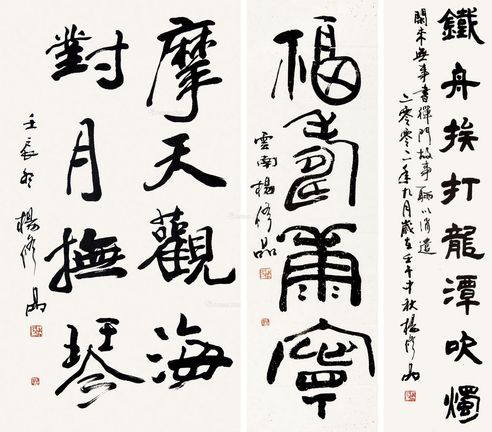 鐵舟挨打龍潭吹燭
閑來無事書禪門故事聊以消遣
二零零二年九月歲在壬午中秋楊修品
福壽康寧
雲南楊修品
摩天觀海
對月撫琴
壬辰冬楊修品